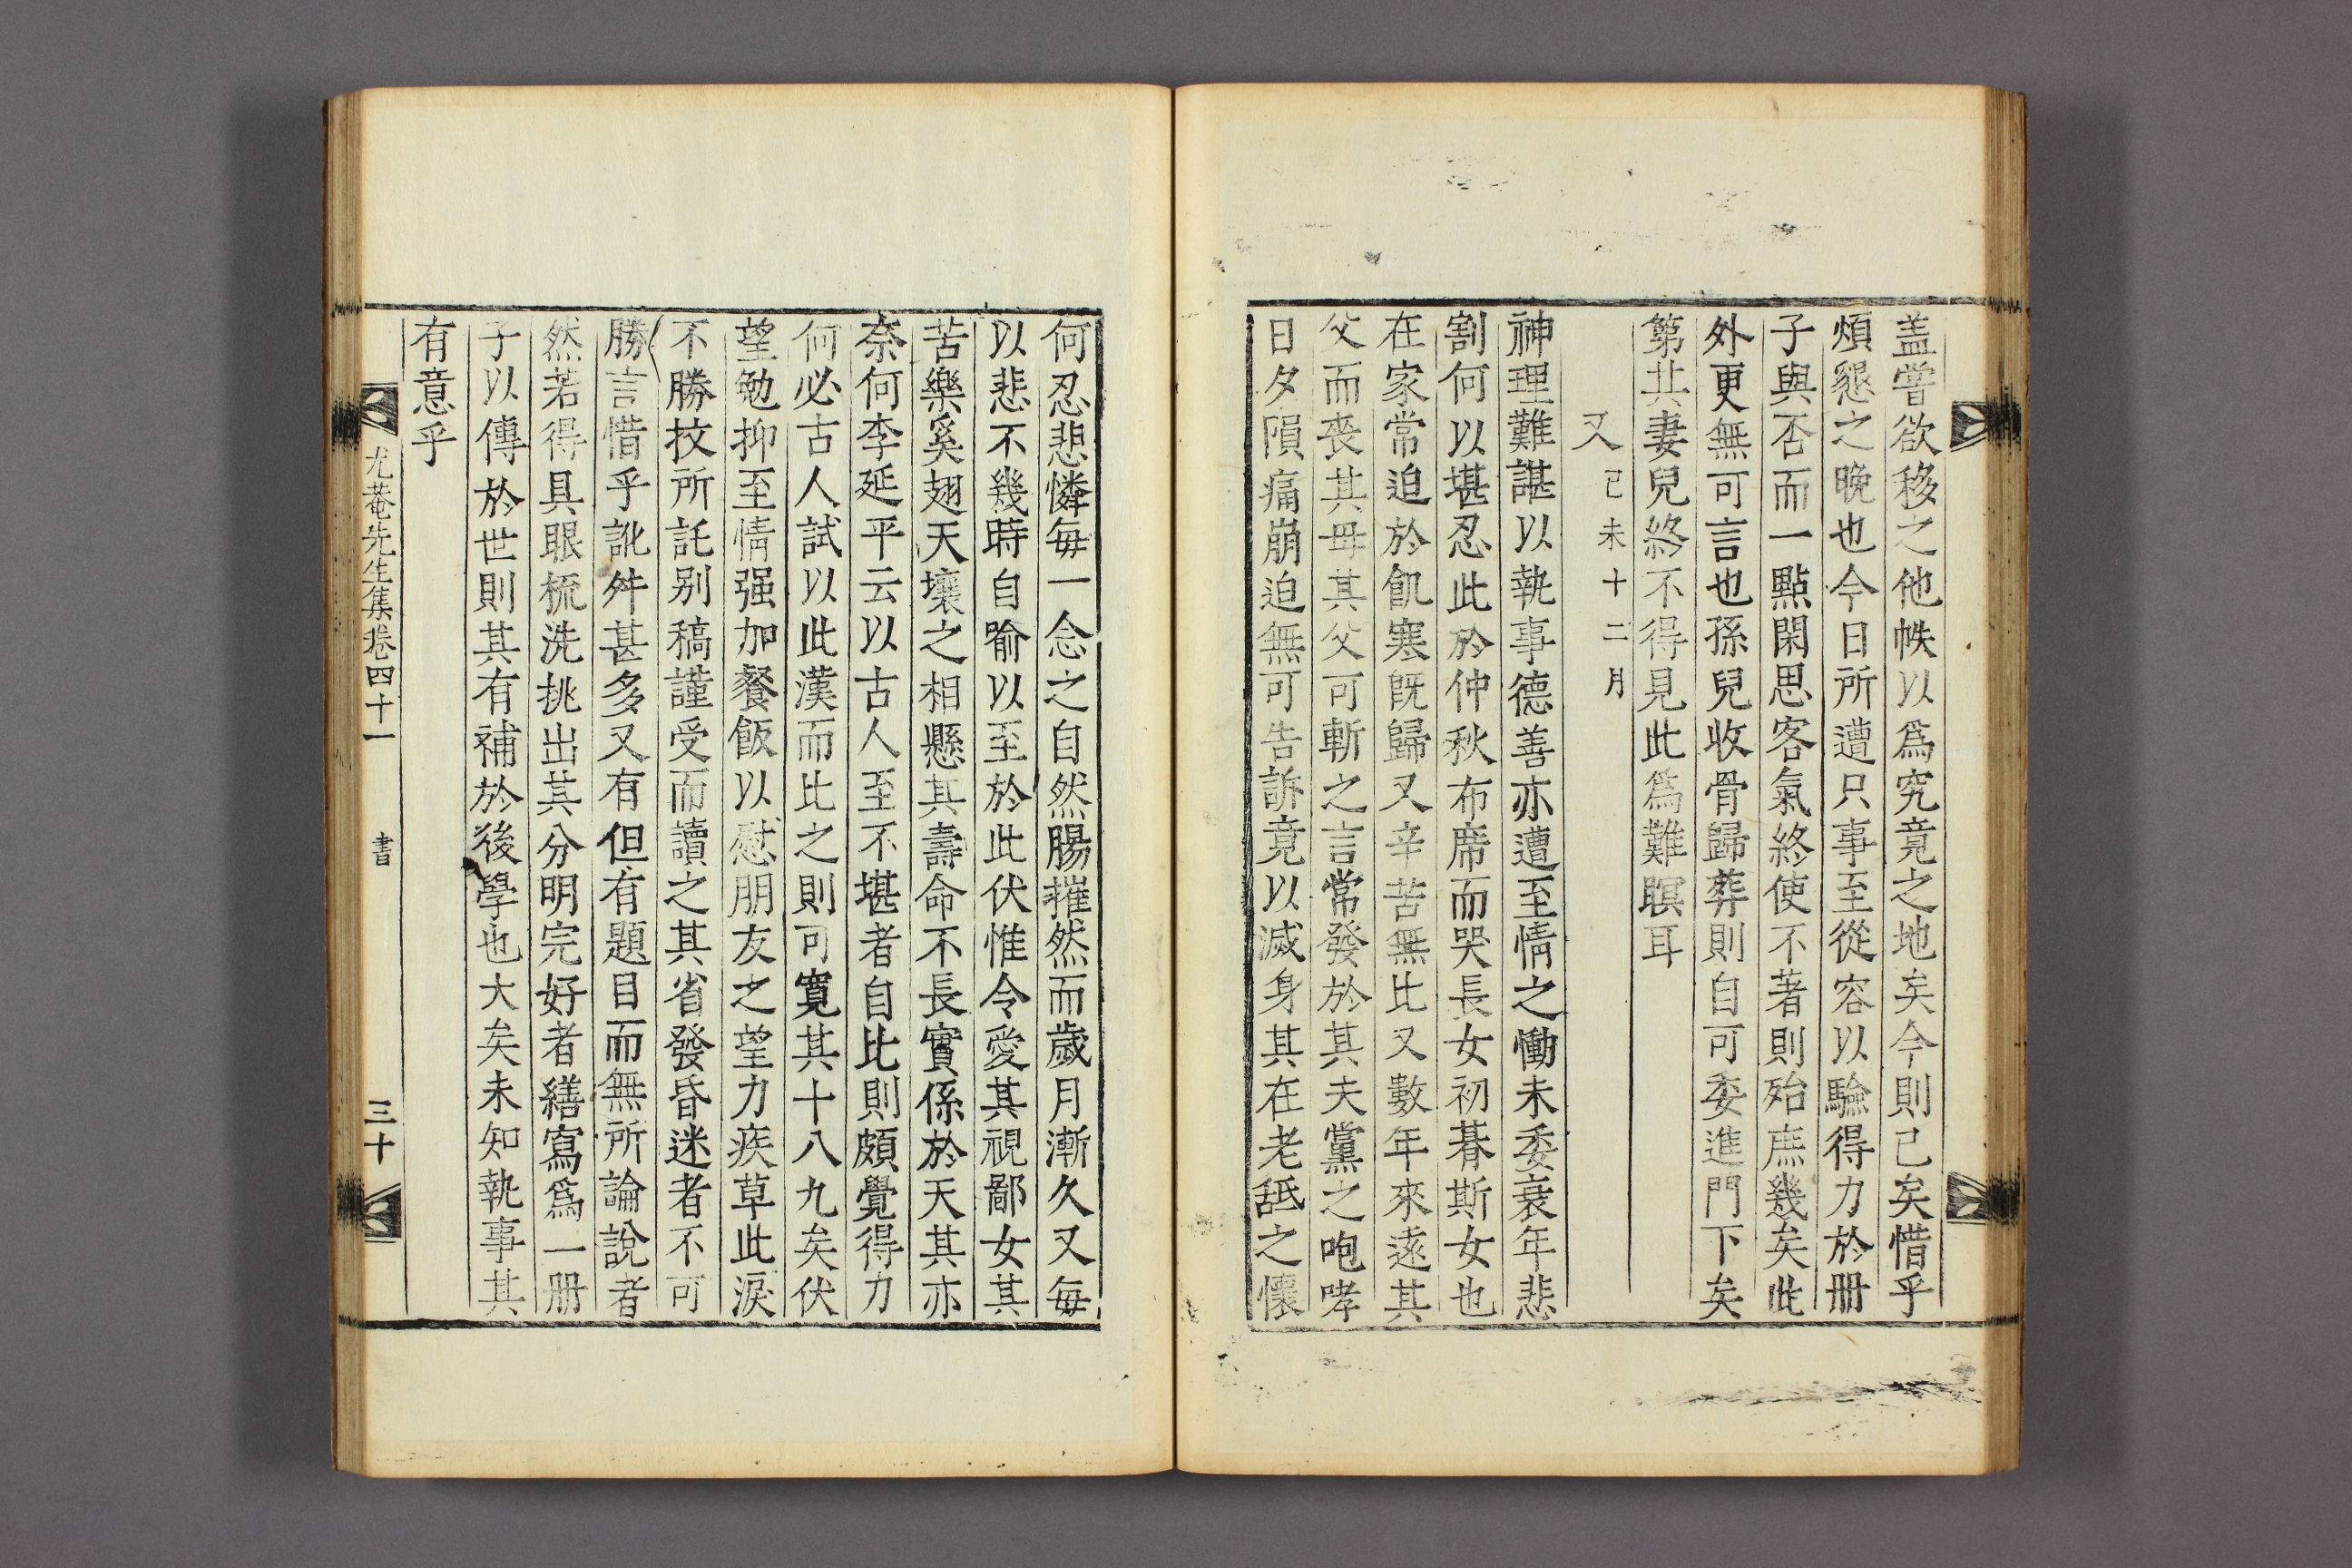 盖嘗欲移之他帙以爲究竟之地矣今則已矣惜乎
煩懇之晚也今日所遭只事至從容以驗得力於册
子與否而一點閑思客氣終使不著則殆庶幾矣此
外更無可言也孫兒收骨歸葬則自可委進門下矣
第共妻兒終不得見此爲難瞑耳
又 己未十二月
神理難諶以執事德善亦遭至情之慟未委衰年悲
割何以堪忍此於仲秋布席而哭長女初朞斯女也
在家常迫於飢寒旣歸又辛苦無比又數年來遠其
父而喪其母其父可斬之言常發於其夫黨之咆哮
日夕隕痛崩迫無可告訴竟以滅身其在老舐之懷
何忍悲憐每一念之自然腸摧然而歲月漸久又每
以悲不幾時自喻以至於此伏惟令愛其視鄙女其
苦樂奚翅天壤之相懸其壽命不長實係於天其亦
奈何李延平云以古人至不堪者自比則頗覺得力
何必古人試以此漢而比之則可寬其十八九矣伏
望勉抑至情强加餐飯以慰朋友之望力疾草此淚
不勝抆所託别稿謹受而讀之其省發昏迷者不可
勝言惜乎訛舛甚多又有但有題目而無所論說者
然若得具眼梳洗挑出其分明完好者繕寫爲一册
子以傳於世則其有補於後學也大矣未知執事其
有意乎
尤菴先生集卷四十一 書 三十